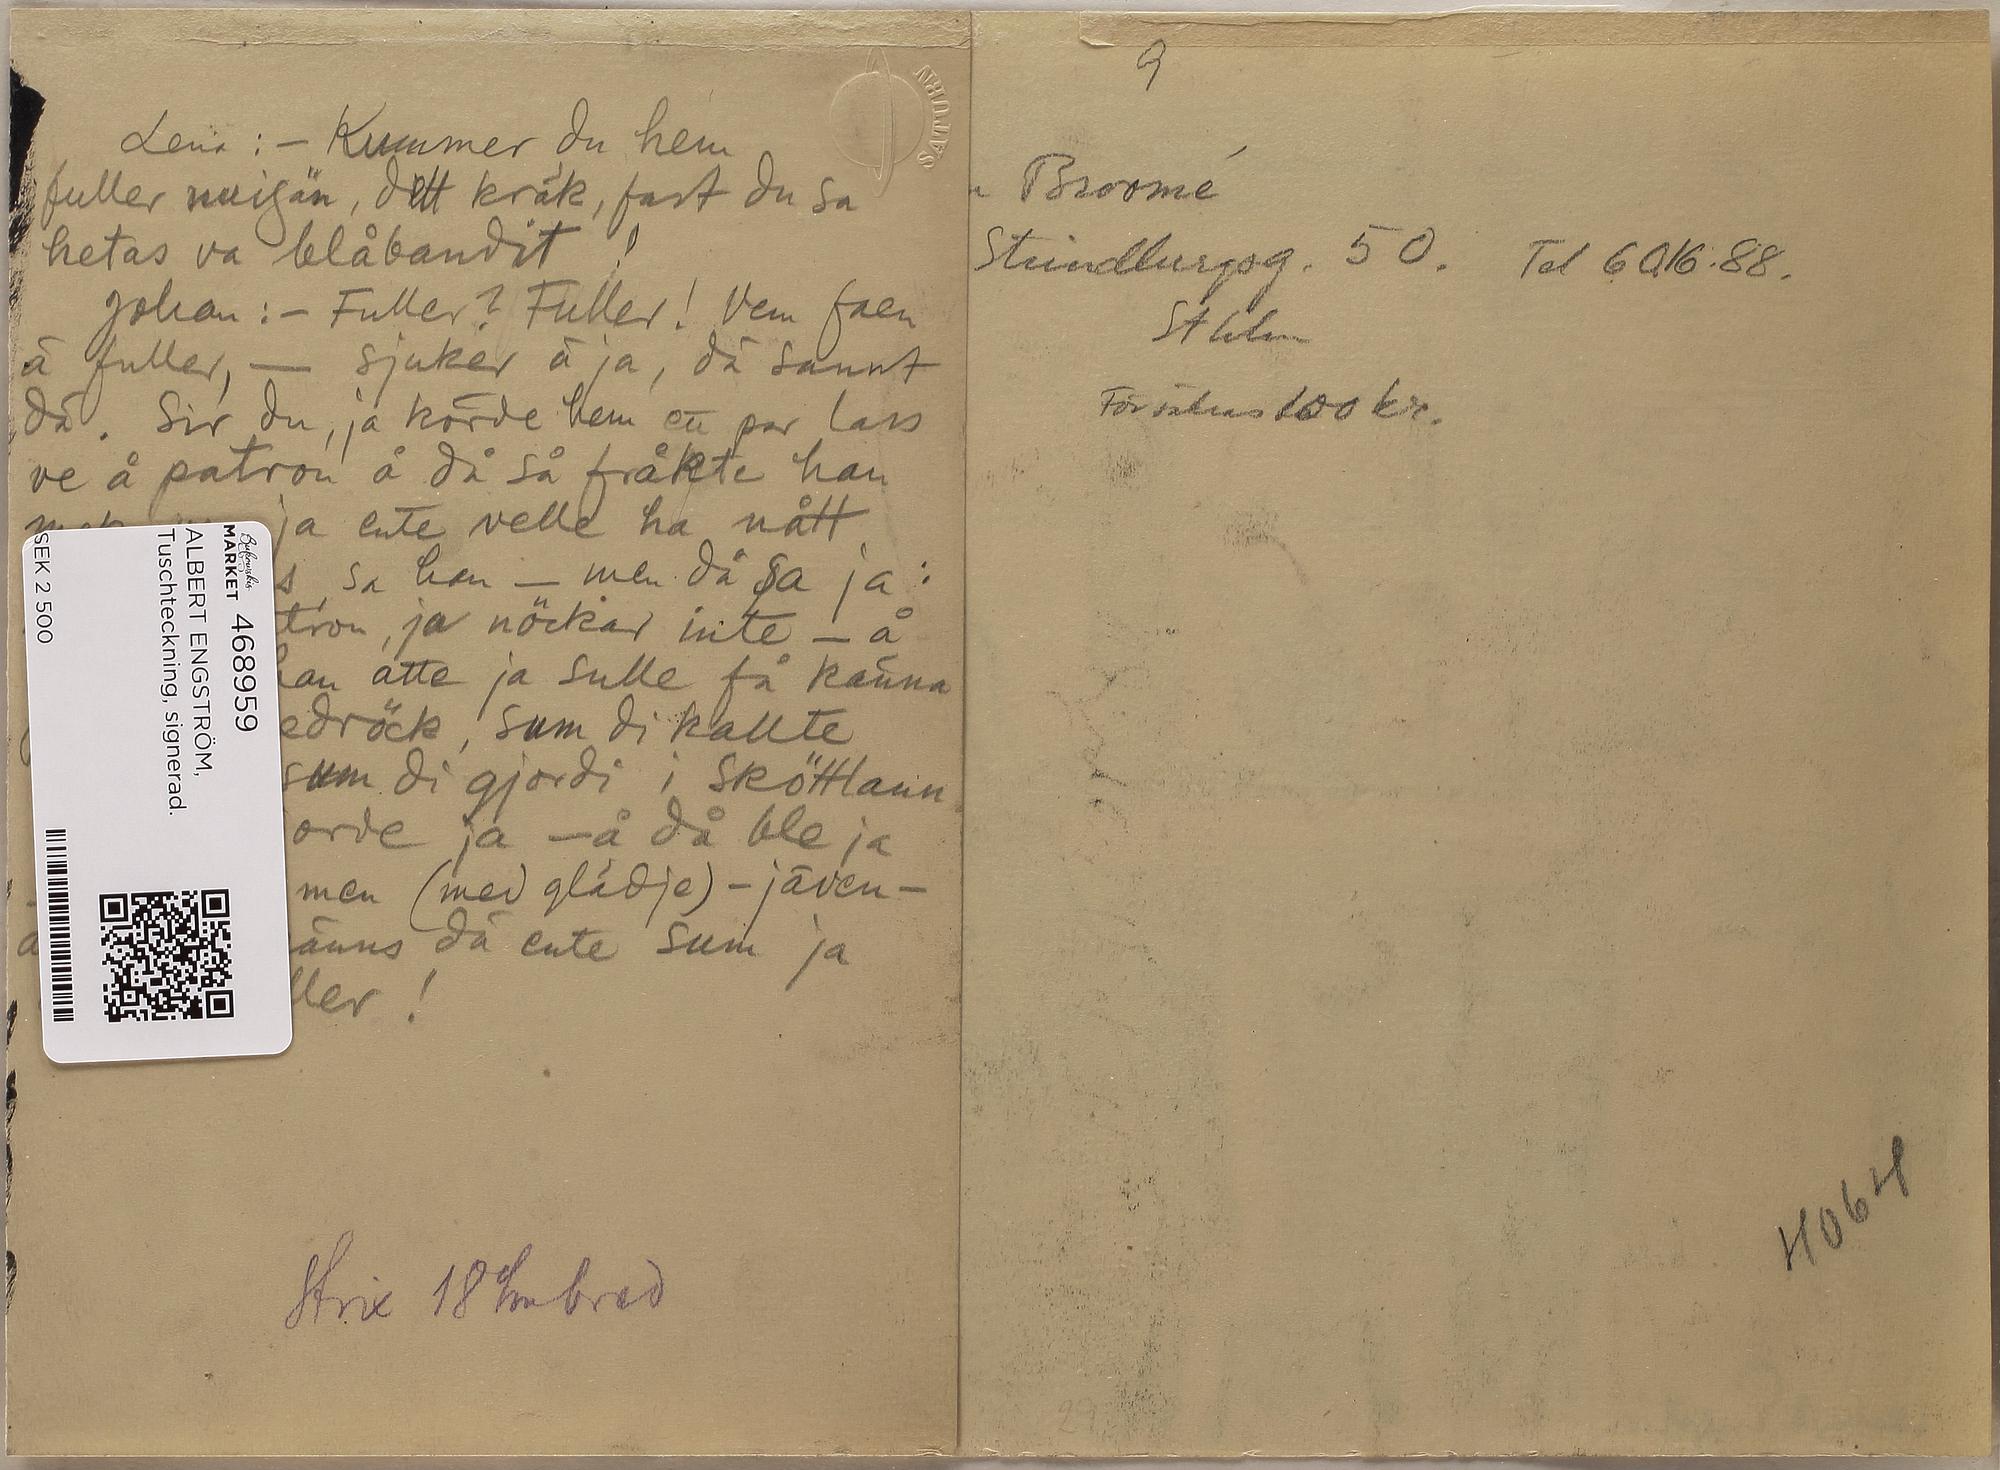 Lena :- Kummer du hem
fuller nuigän, ditt kräk, fast du sa
hetas va blåbandit !
Johan :- Fuller? Fuller! Vem faen
ä fuller, — sjuker ä ja, dä sannt
dä. Sir du, ja körde hem en par lass
ve å patron å då så fråkte han
ja ente velle ha nått
s, sa han — men då sa ja :
tron, ja nöckar inte — å
han atte ja sulle få känna
edröck, sum di kallte
sum di gjordi i Sköttlann
orde ja — å då ble ja
men (med glädje) - jäven-
änns dä ente sum ja
ller !
Strix 18 cm bred
SATURN
Bukowskis
MARKET 468959
ALBERT ENGSTRÖM,
Tuschteckning, signerad.
SEK 2 500
9
Broomé
Strindbergsg. 50. Tel 60.16.88.
Sthlm
Försäkras 100 kr.
H064
29